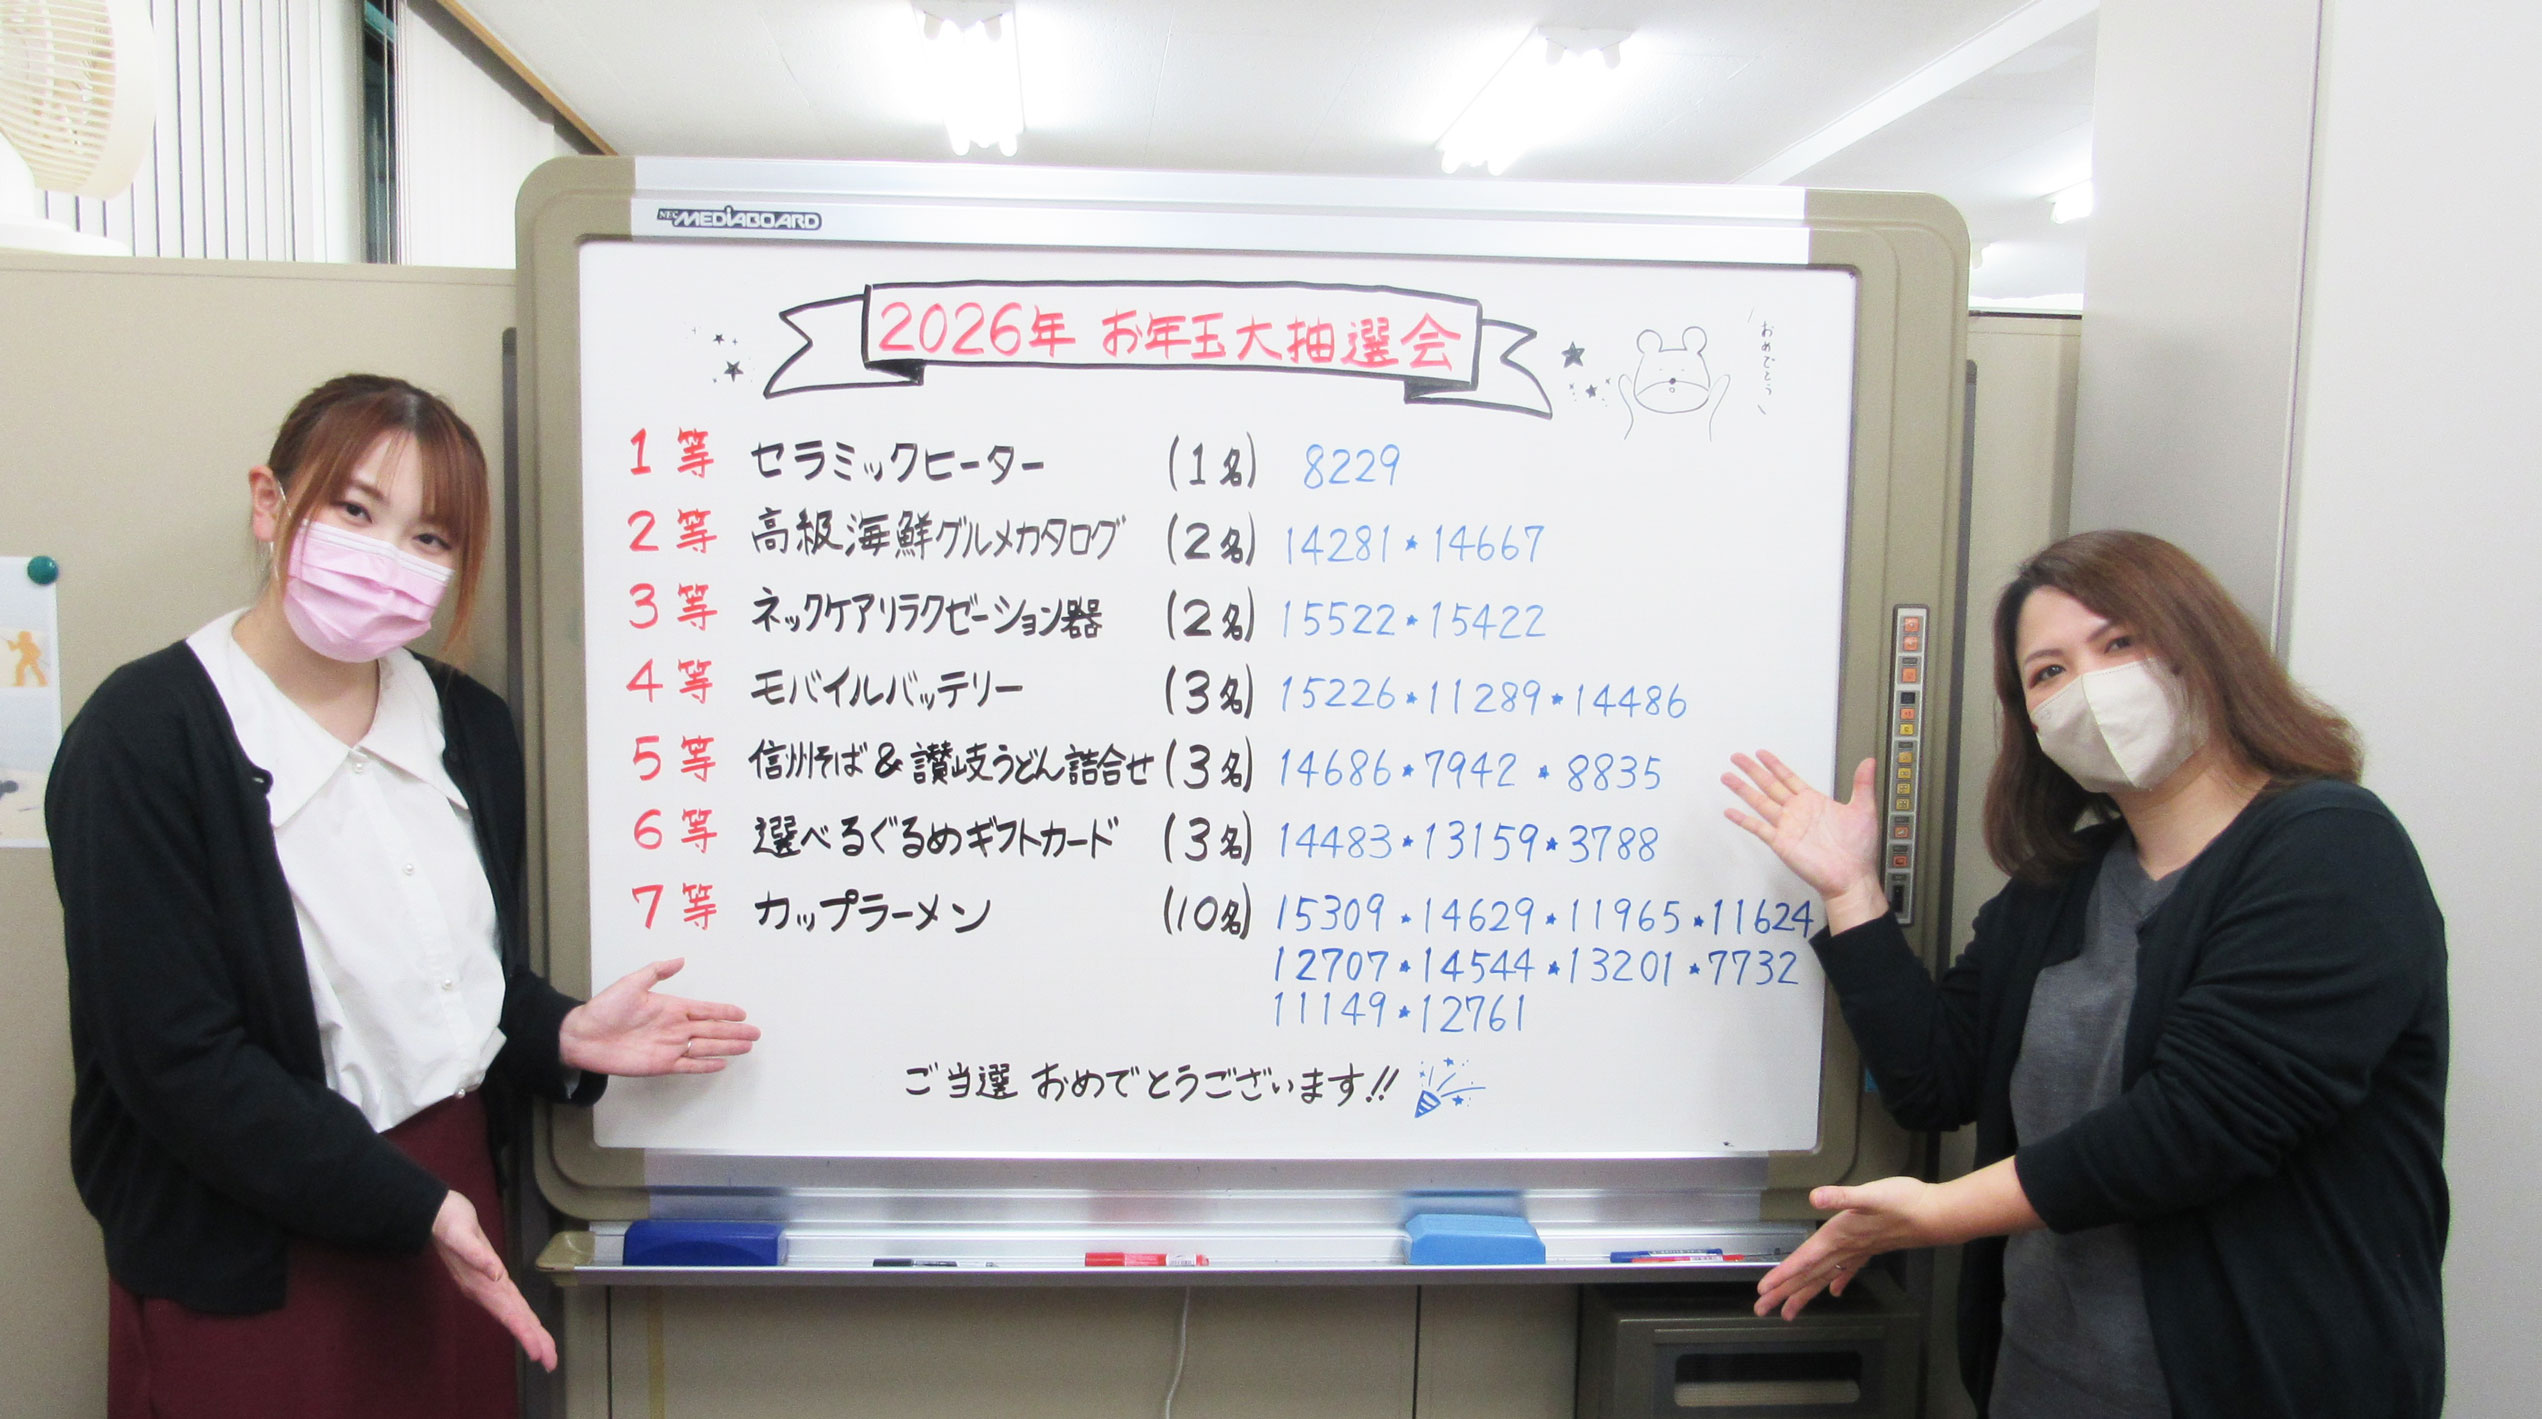 NEC MEDIABOARD
2026年 お年玉大抽選会
おめでとう
1等 セラミックヒーター (1名) 8229
2等 高級海鮮グルメカタログ (2名) 14281★14667
3等 ネックケアリラクゼーション器 (2名) 15522★15422
4等 モバイルバッテリー (3名) 15226★11289★14486
5等 信州そば&讃岐うどん詰合せ (3名) 14686★7942★8835
6等 選べるぐるめギフトカード (3名) 14483★13159★3788
7等 カップラーメン (10名) 15309★14629★11965★11624
12707★14544★13201★7732
11149★12761
ご当選 おめでとうございます!!